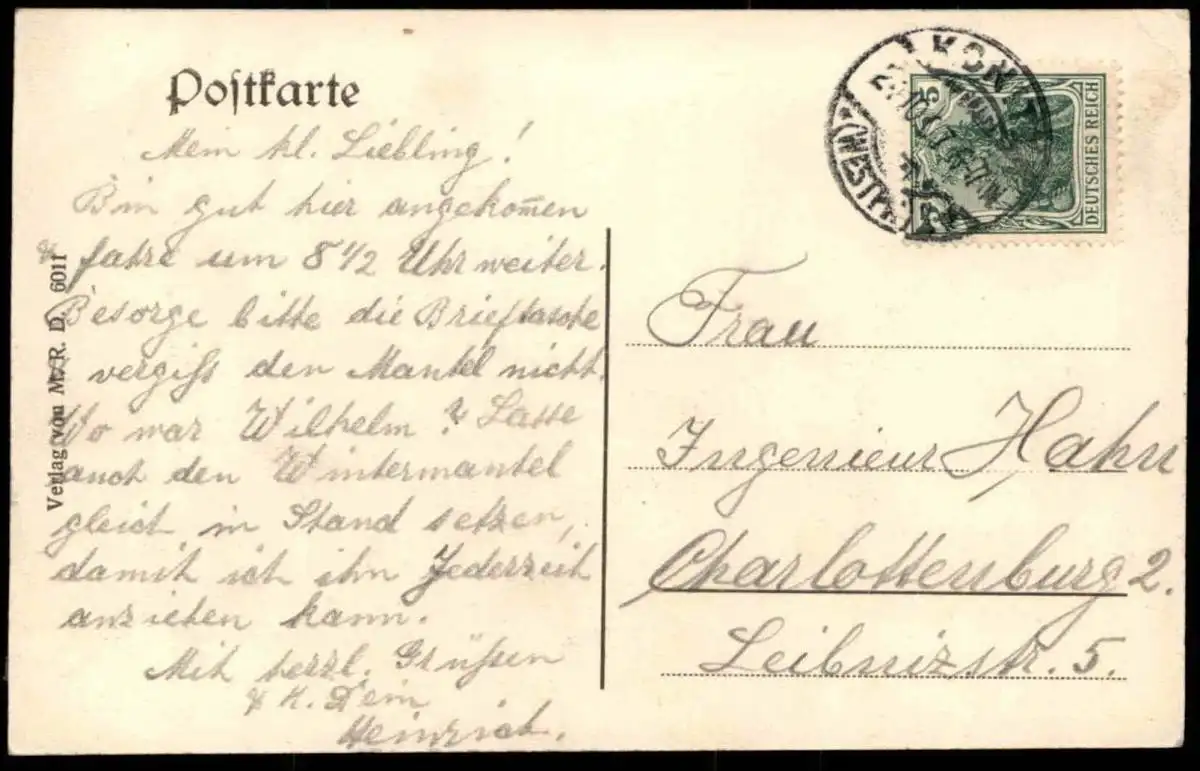 Postkarte
Mein kl. Liebling!
Bin gut hier angekom̄en
& fahre um 8 1/2 Uhr weiter.
Besorge bitte die Brieftasche
vergiß den Mantel nicht.
Wo war Wilhelm? Lasse
auch den Wintermantel
gleich in Stand setzen,
damit ich ihn Jederzeit
anziehen kann.
Mit herzl. Grüßen
& K. Dein
Heinrich.
Verlag von M. R. D. 6011
KONITZ
(WESTPR.)
5
DEUTSCHES REICH
Frau
Ingenieur Hahn
Charlottenburg 2.
Leibnizstr. 5.